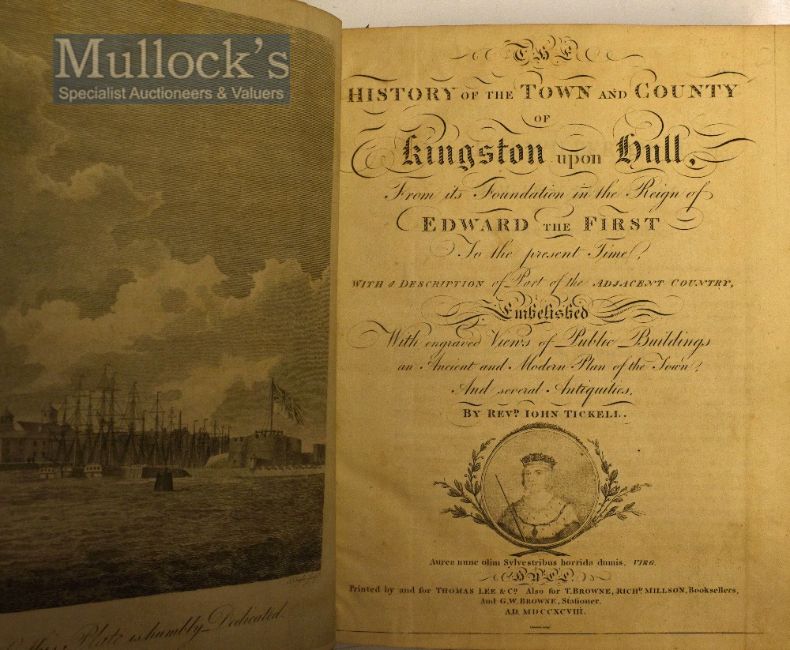 Mullock's
Specialist Auctioneers & Valuers
THE
HISTORY OF THE TOWN AND COUNTY
OF
Kingston upon Hull,
From its Foundation in the Reign of
EDWARD THE FIRST
To the present Time,
WITH a DESCRIPTION of Part of the ADJACENT COUNTRY,
Embelished
With engraved Views of Public Buildings
an Ancient and Modern Plan of the Town,
And several Antiquities,
BY REVD. IOHN TICKELL.
Aurea nunc olim Sylvestribus horrida dumis. VIRG.
HULL
Printed by and for THOMAS LEE & Co. Also for T. BROWNE, RICHD. MILLSON, Booksellers,
And G.W. BROWNE, Stationer.
A.D. MDCCXCVIII.
this Plate is humbly Dedicated